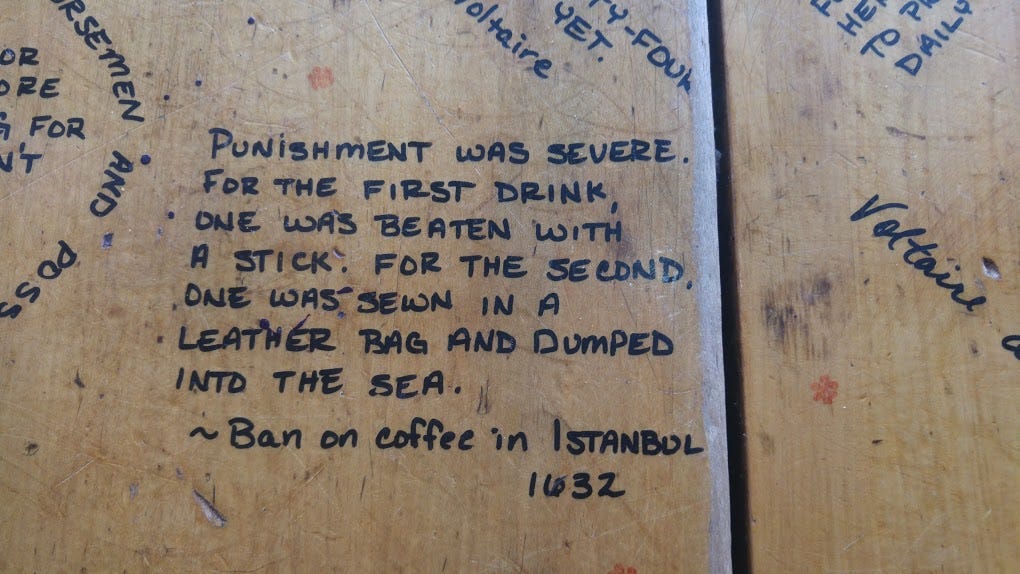 ORSEMEN AND
POSS
OR
ORE
G FOR
N'T
Voltaire
TY-FOUR
YET.
PUNISHMENT WAS SEVERE.
FOR THE FIRST DRINK,
ONE WAS BEATEN WITH
A STICK. FOR THE SECOND,
ONE WAS SEWN IN A
LEATHER BAG AND DUMPED
INTO THE SEA.
~ Ban on coffee in ISTANBUL
1632
TO
DAILY
Voltaire